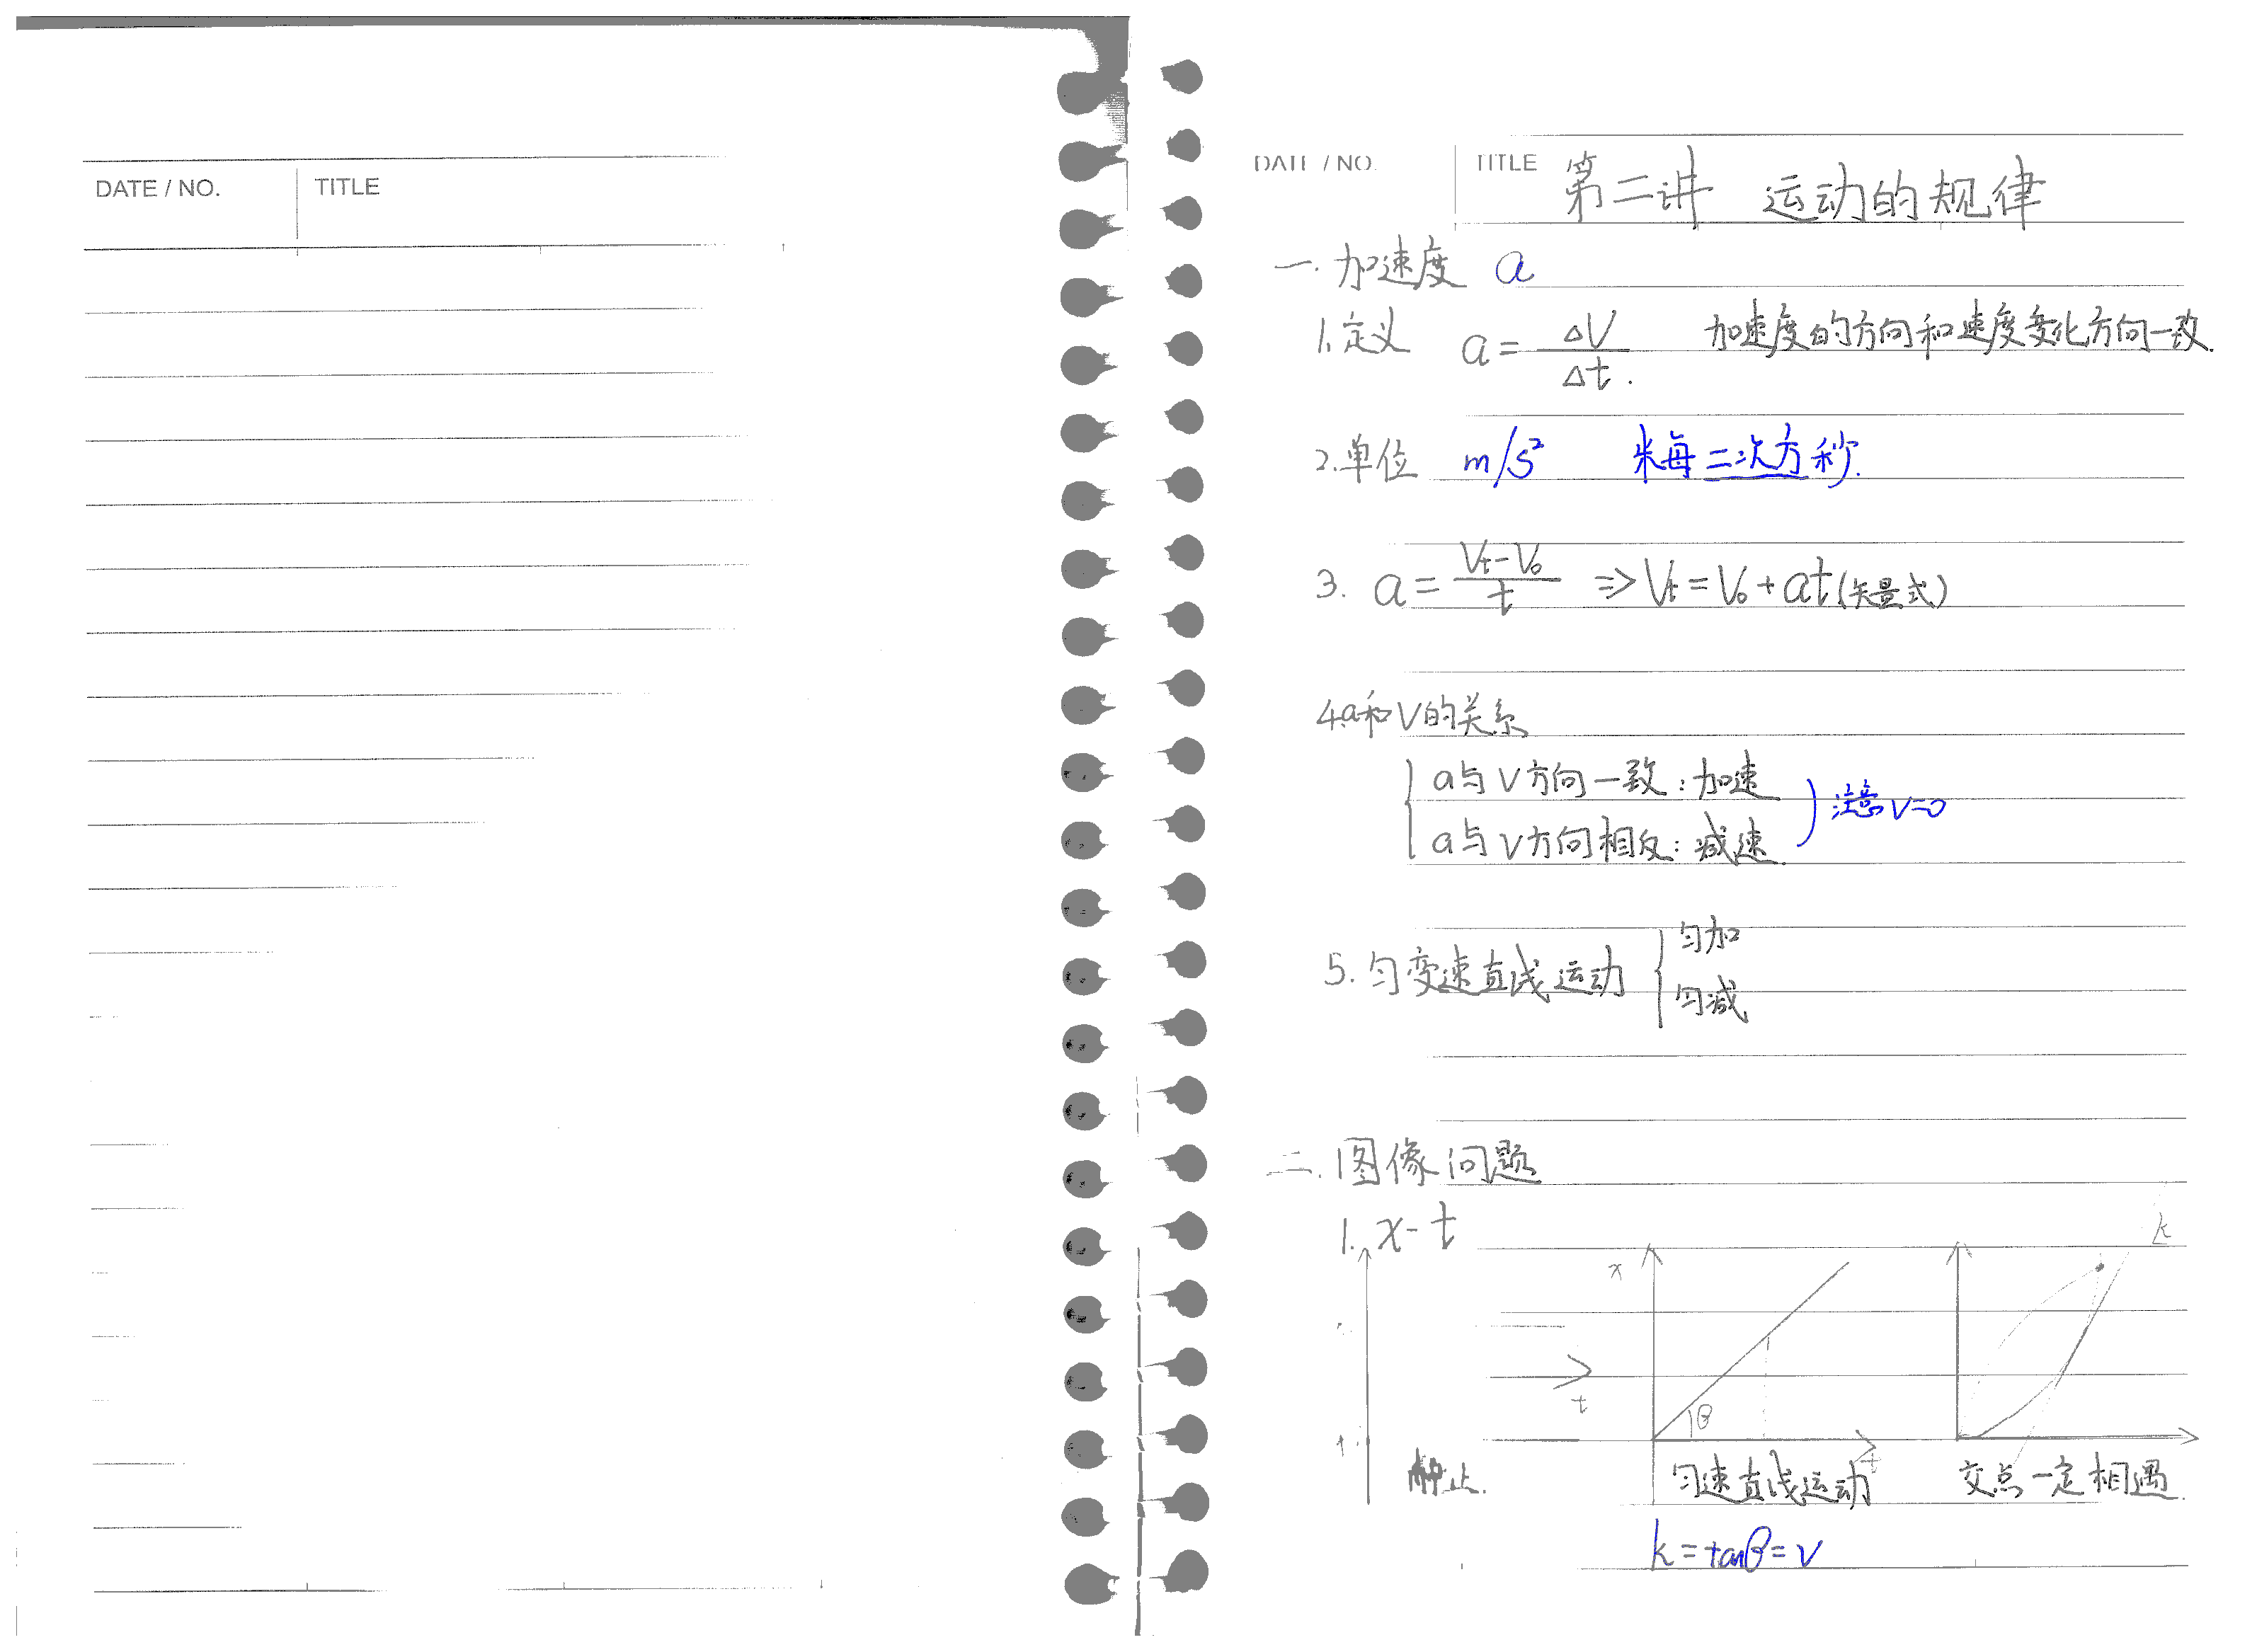 DATE / NO. TITLE
DATE / NO. TITLE 第二讲 运动的规律
一. 加速度 a
1. 定义 a = ΔV / Δt . 加速度的方向和速度变化方向一致.
2. 单位 m/s² 米每二次方秒.
3. a = (Vt - V₀) / t ⇒ Vt = V₀ + at (矢量式)
4. a和V的关系
a与V方向一致: 加速
a与V方向相反: 减速
注意 V=0
5. 匀变速直线运动
匀加
匀减
二. 图像问题
1. x-t
k
x
t
β
t
静止.
匀速直线运动
交点一定相遇.
k = tanβ = v